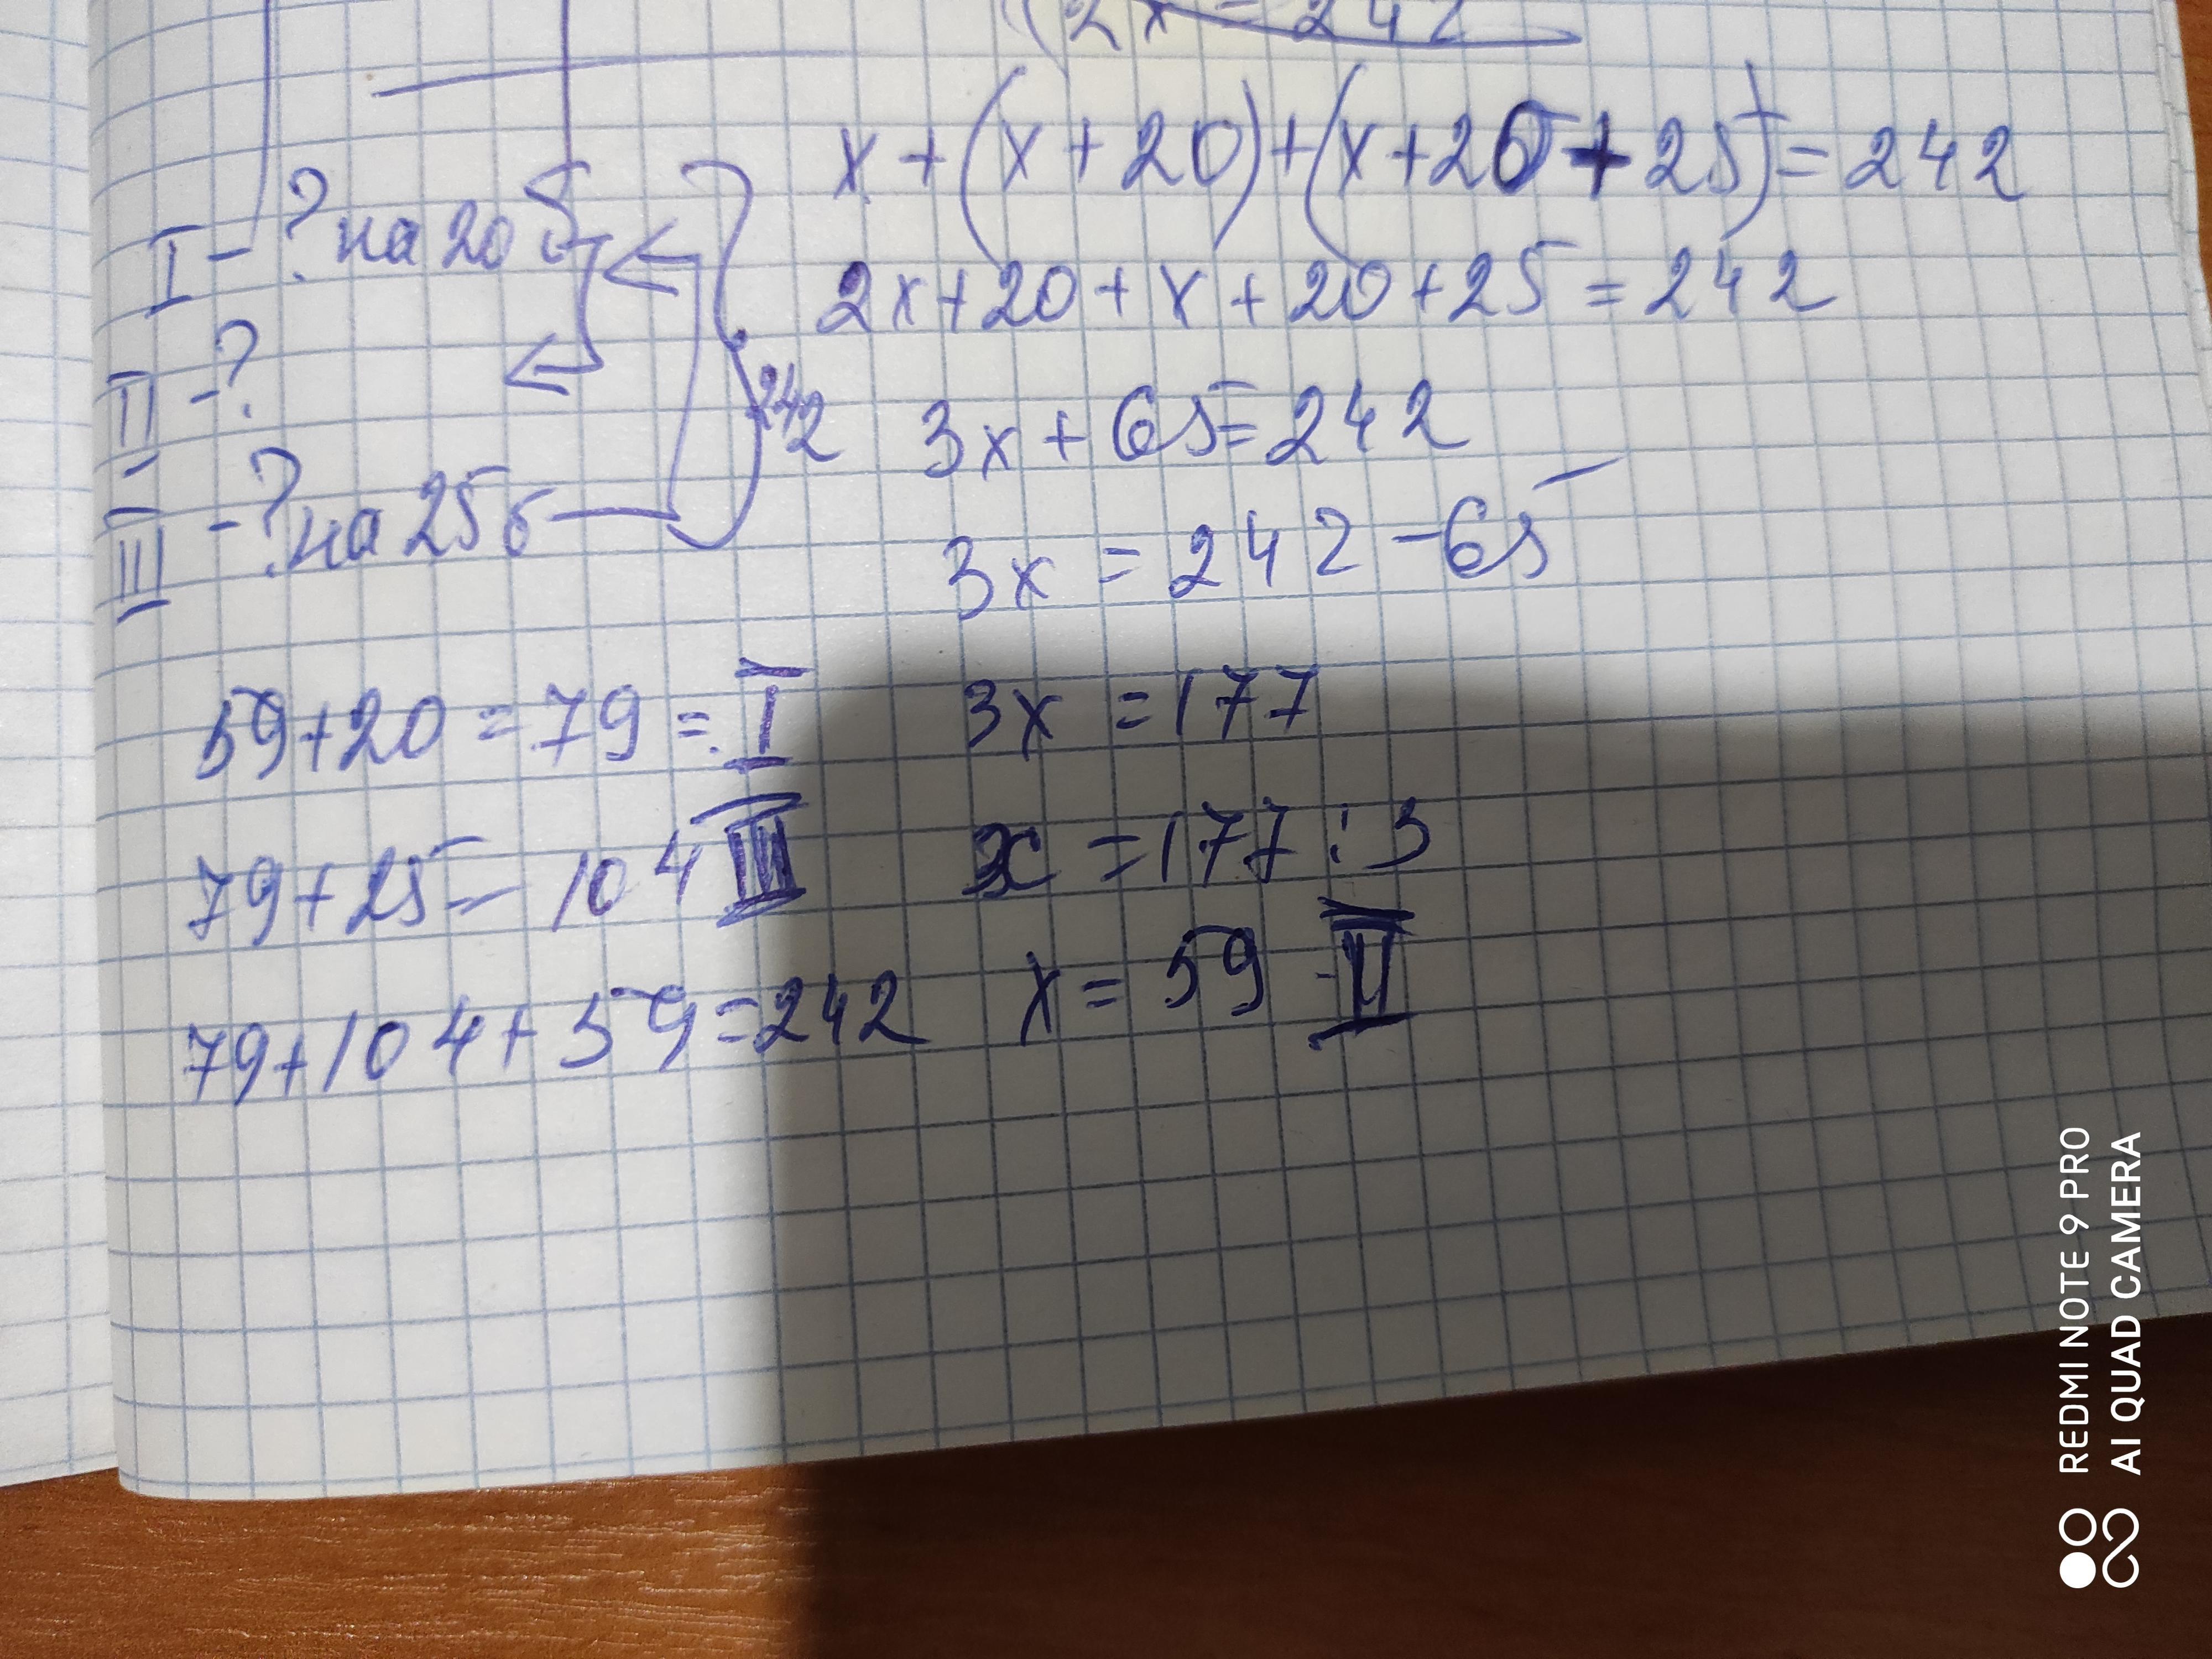 2x = 242
x + (x + 20) + (x + 20 + 25) = 242
I - ? на 20 б
2x + 20 + x + 20 + 25 = 242
II - ?
242
3x + 65 = 242
III - ? на 25 б
3x = 242 - 65
59 + 20 = 79 = I
3x = 177
79 + 25 = 104 III
x = 177 : 3
x = 59 - II
79 + 104 + 59 = 242
REDMI NOTE 9 PRO
AI QUAD CAMERA